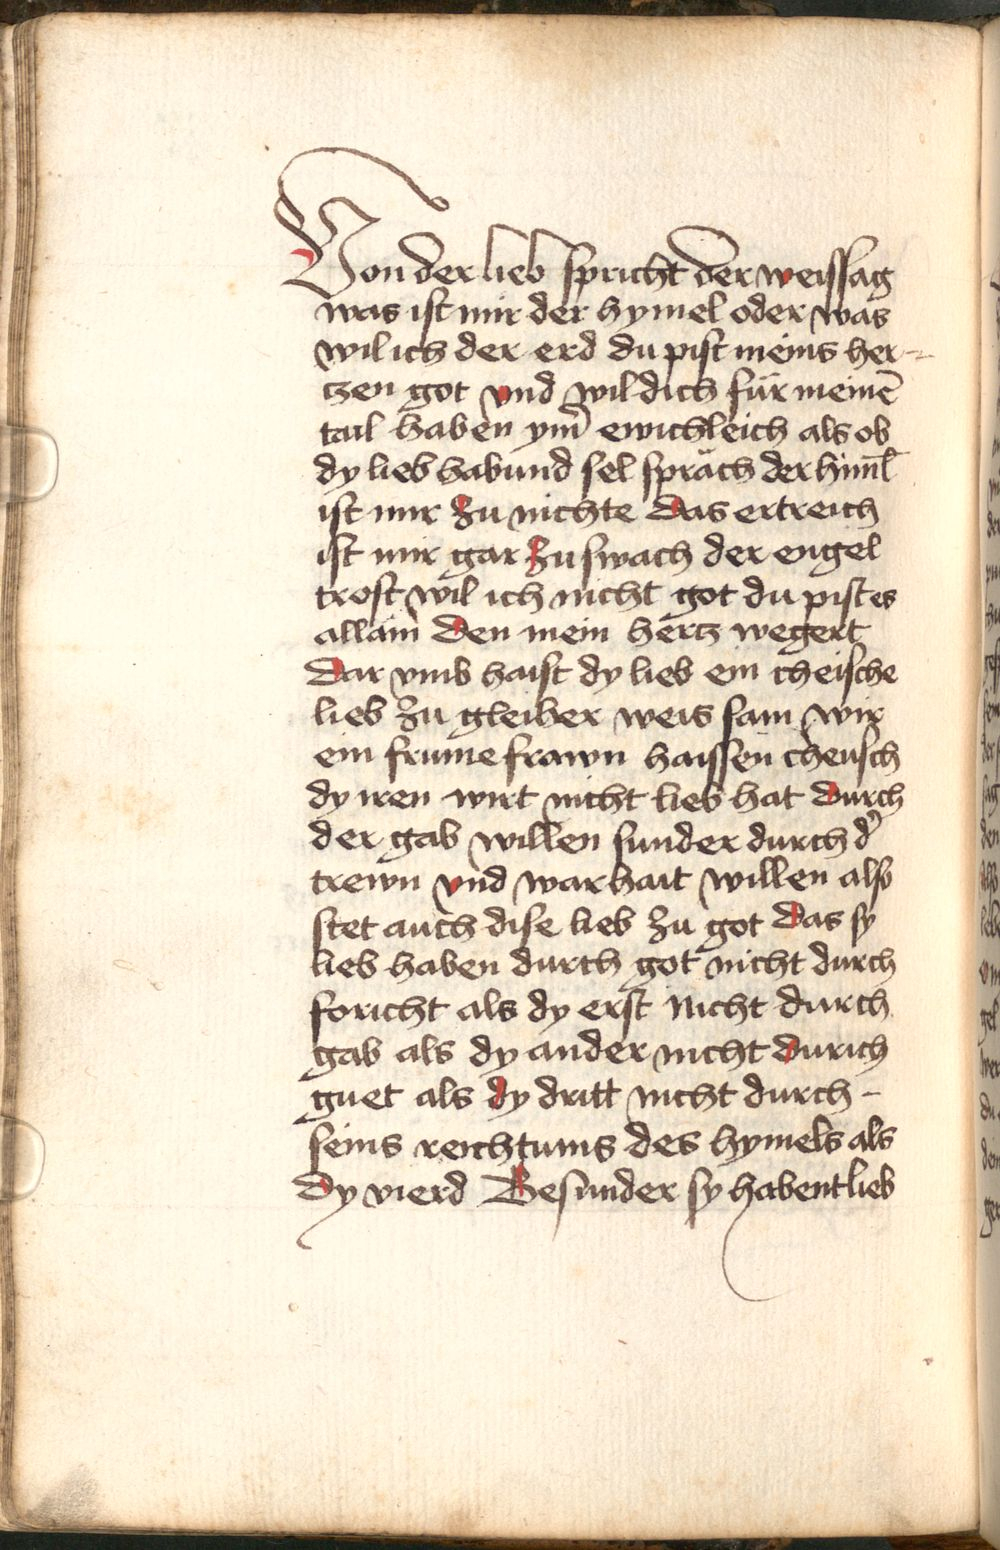 Von der lieb spricht der weissag
was ist mir der hymel oder was
wil ich der erd du pist meins her-
tzen got vnd wil dich für meinē
tail haben ym̄ ewichleich als ob
dy lieb habund sel spräch der himl̄
ist mir zu nichte das ertreich
ist mir gar zu swach der engel
trost wil ich nicht got du pist es
allain den mein hertz wegert
Dar vmb haist dy lieb ein cheische
lieb zu gleiher weis sam wir
ein frume frawn haissen cheusch
dy iren wirt nicht lieb hat durch
der gab willen sunder durch d̄
trewn vnd warhait willen also
stet auch dise lieb zu got das sy
lieb haben durch got nicht durch
foricht als dy erst nicht durch
gab als dy ander nicht durich
guet als dy dritt nicht durch -
seins reichtums des hymels als
dy vierd Besunder sy habent lieb